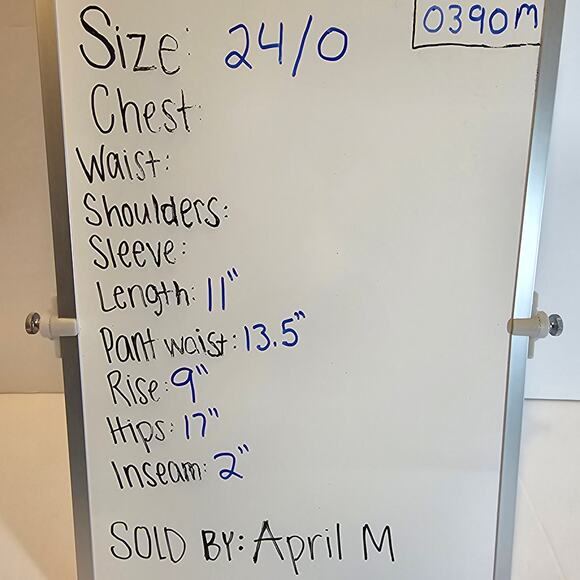 Size: 24/0
0390M
Chest:
Waist:
Shoulders:
Sleeve:
Length: 11"
Pant waist: 13.5"
Rise: 9"
Hips: 17"
Inseam: 2"
SOLD BY: April M